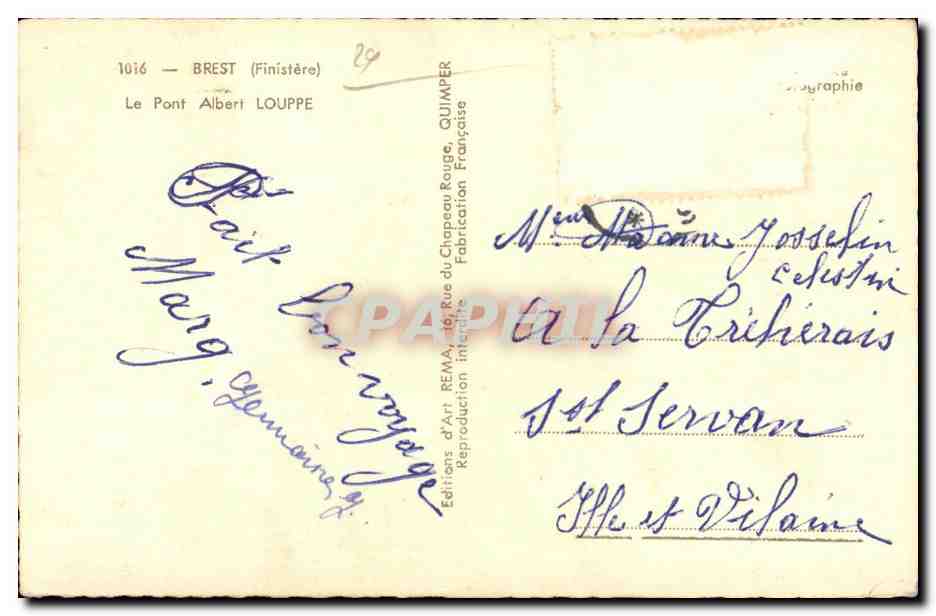 1016 — BREST (Finistère)
Le Pont Albert LOUPPE
29
Fait bon voyage
Marg.
Germaine
Editions d'Art REMA, 16, Rue du Chapeau Rouge, QUIMPER
Reproduction interdite Fabrication Française
CPAPHIL
Josselin
Celestin
A la Tréhérais
St Servan
Ille et Vilaine